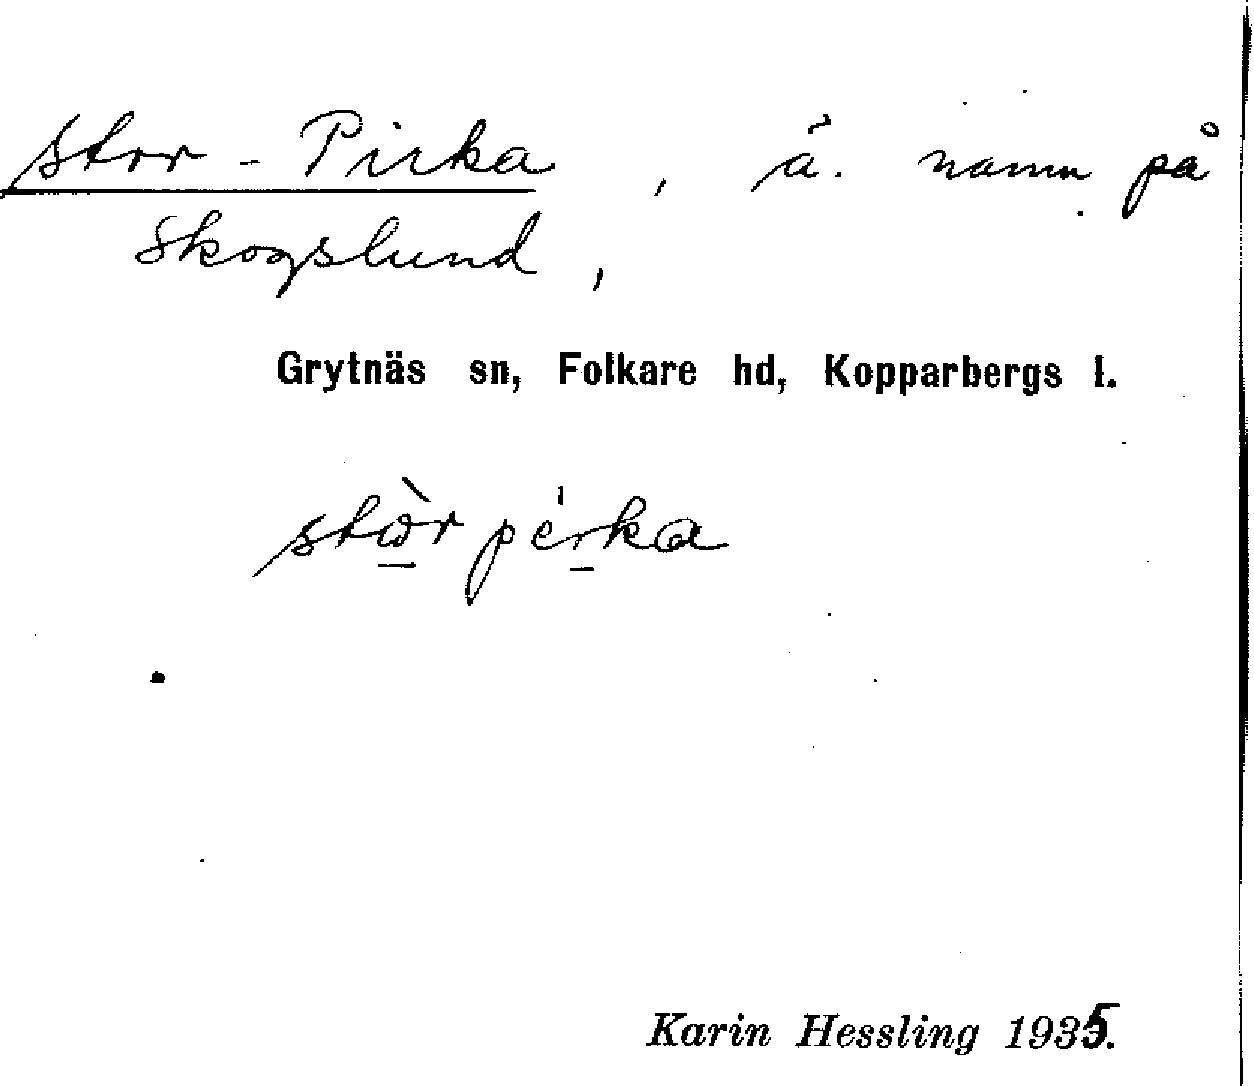 Stor-Pirka, ä. namn på
Skogslund,
Grytnäs sn, Folkare hd, Kopparbergs l.
stὼr pérka
Karin Hessling 1935.